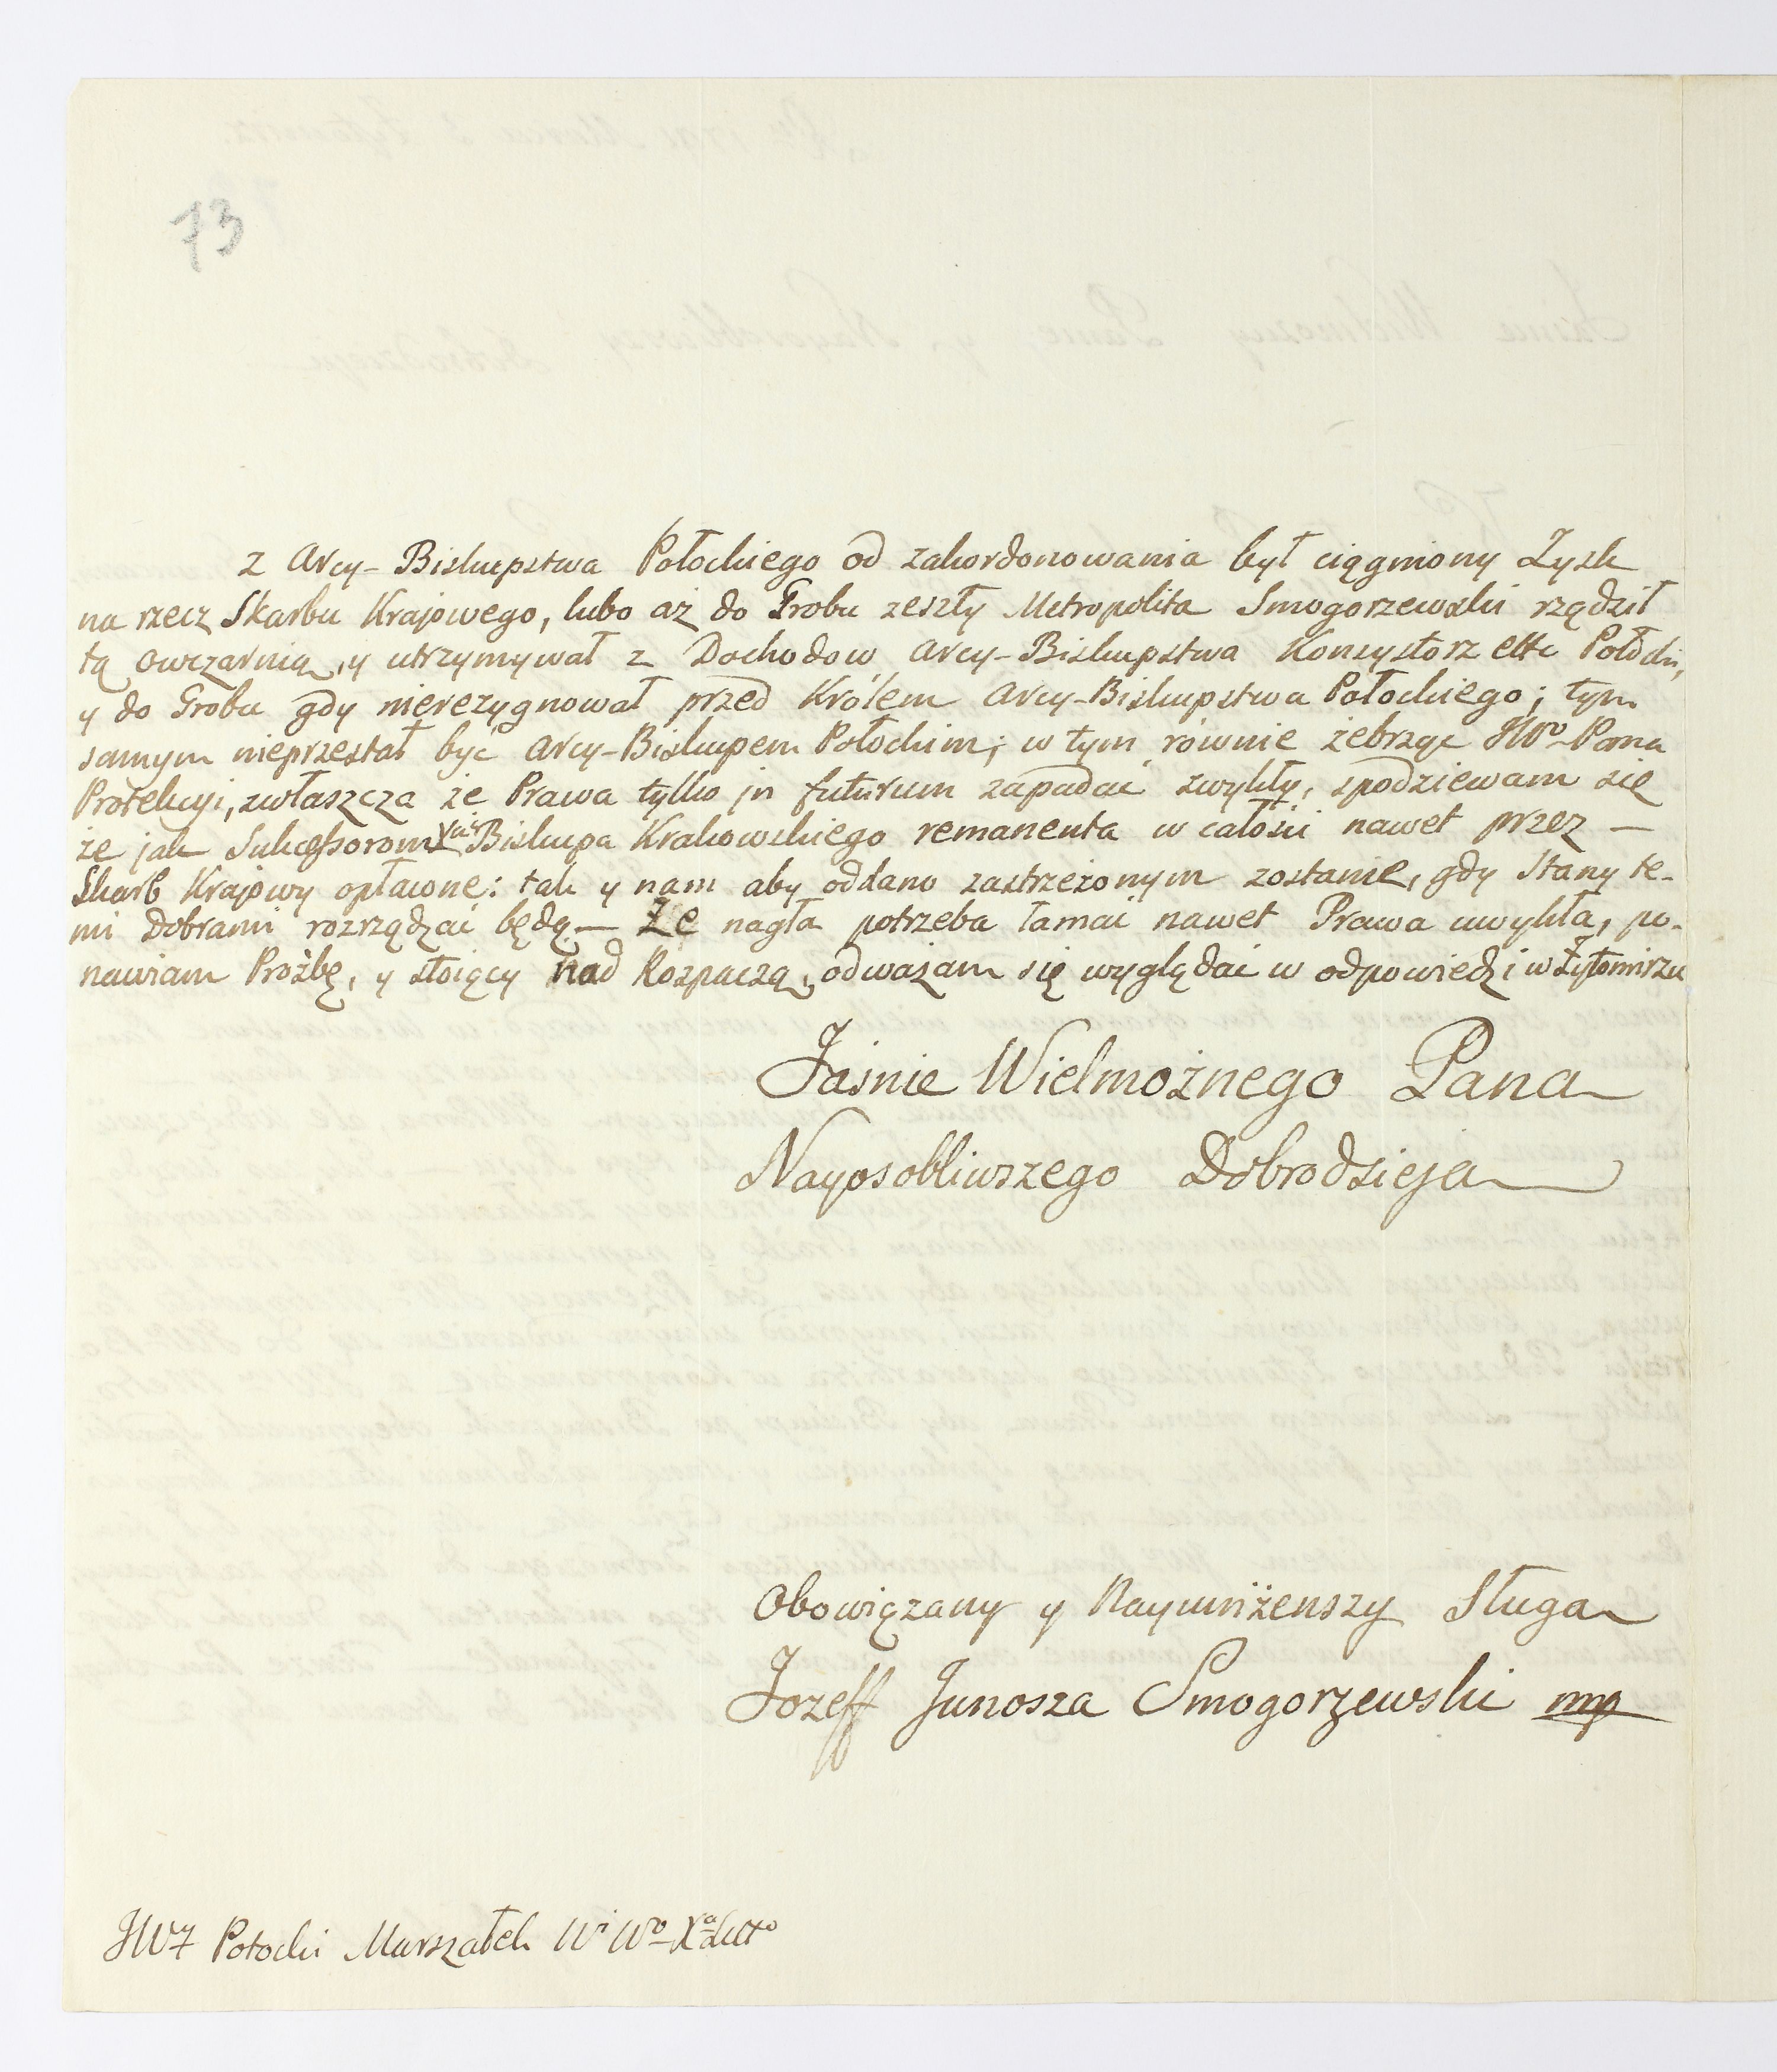 73
z Arcy-Biskupstwa Połockiego od zakordonowania był ciągniony Zysk
na rzecz Skarbu Krajowego, lubo aż do Grobu zeszły Metropolita Smogorzewski rządził
tą owczarnią, y utrzymywał z Dochodow Arcy-Biskupstwa Konsystorz ettc Połocki,
y do Grobu gdy nierezygnował przed Królem Arcy-Biskupstwa Połockiego; tym
samym nieprzestał być Arcy-Biskupem Połockim; w tym równie żebrząc JWo Pana
Protekcyi, zwłaszcza że Prawa tylko in futurum zapadać zwykły, spodziewam się
że jak Sukcessorom Biskupa Krakowskiego remanenta w całości nawet przez —
Skarb Krajowy opłacone: tak y nam aby oddano zastrzeżonym zostanie, gdy Stany te-
mi Dobrami rozrządzać będą — Że nagła potrzeba łamać nawet Prawa zwykła, po-
nawiam Proźbę, y stoiący nad Rozpaczą, odważam się wyglądać w odpowiedzi w Żytomirzu
Jaśnie Wielmożnego Pana
Nayosobliwszego Dobrodzieja
Obowiązany y Nayuniżenszy Sługa
Jozeff Junosza Smogorzewski mp
JWJ Potocki Marszałek Wi Wo Xa Litto